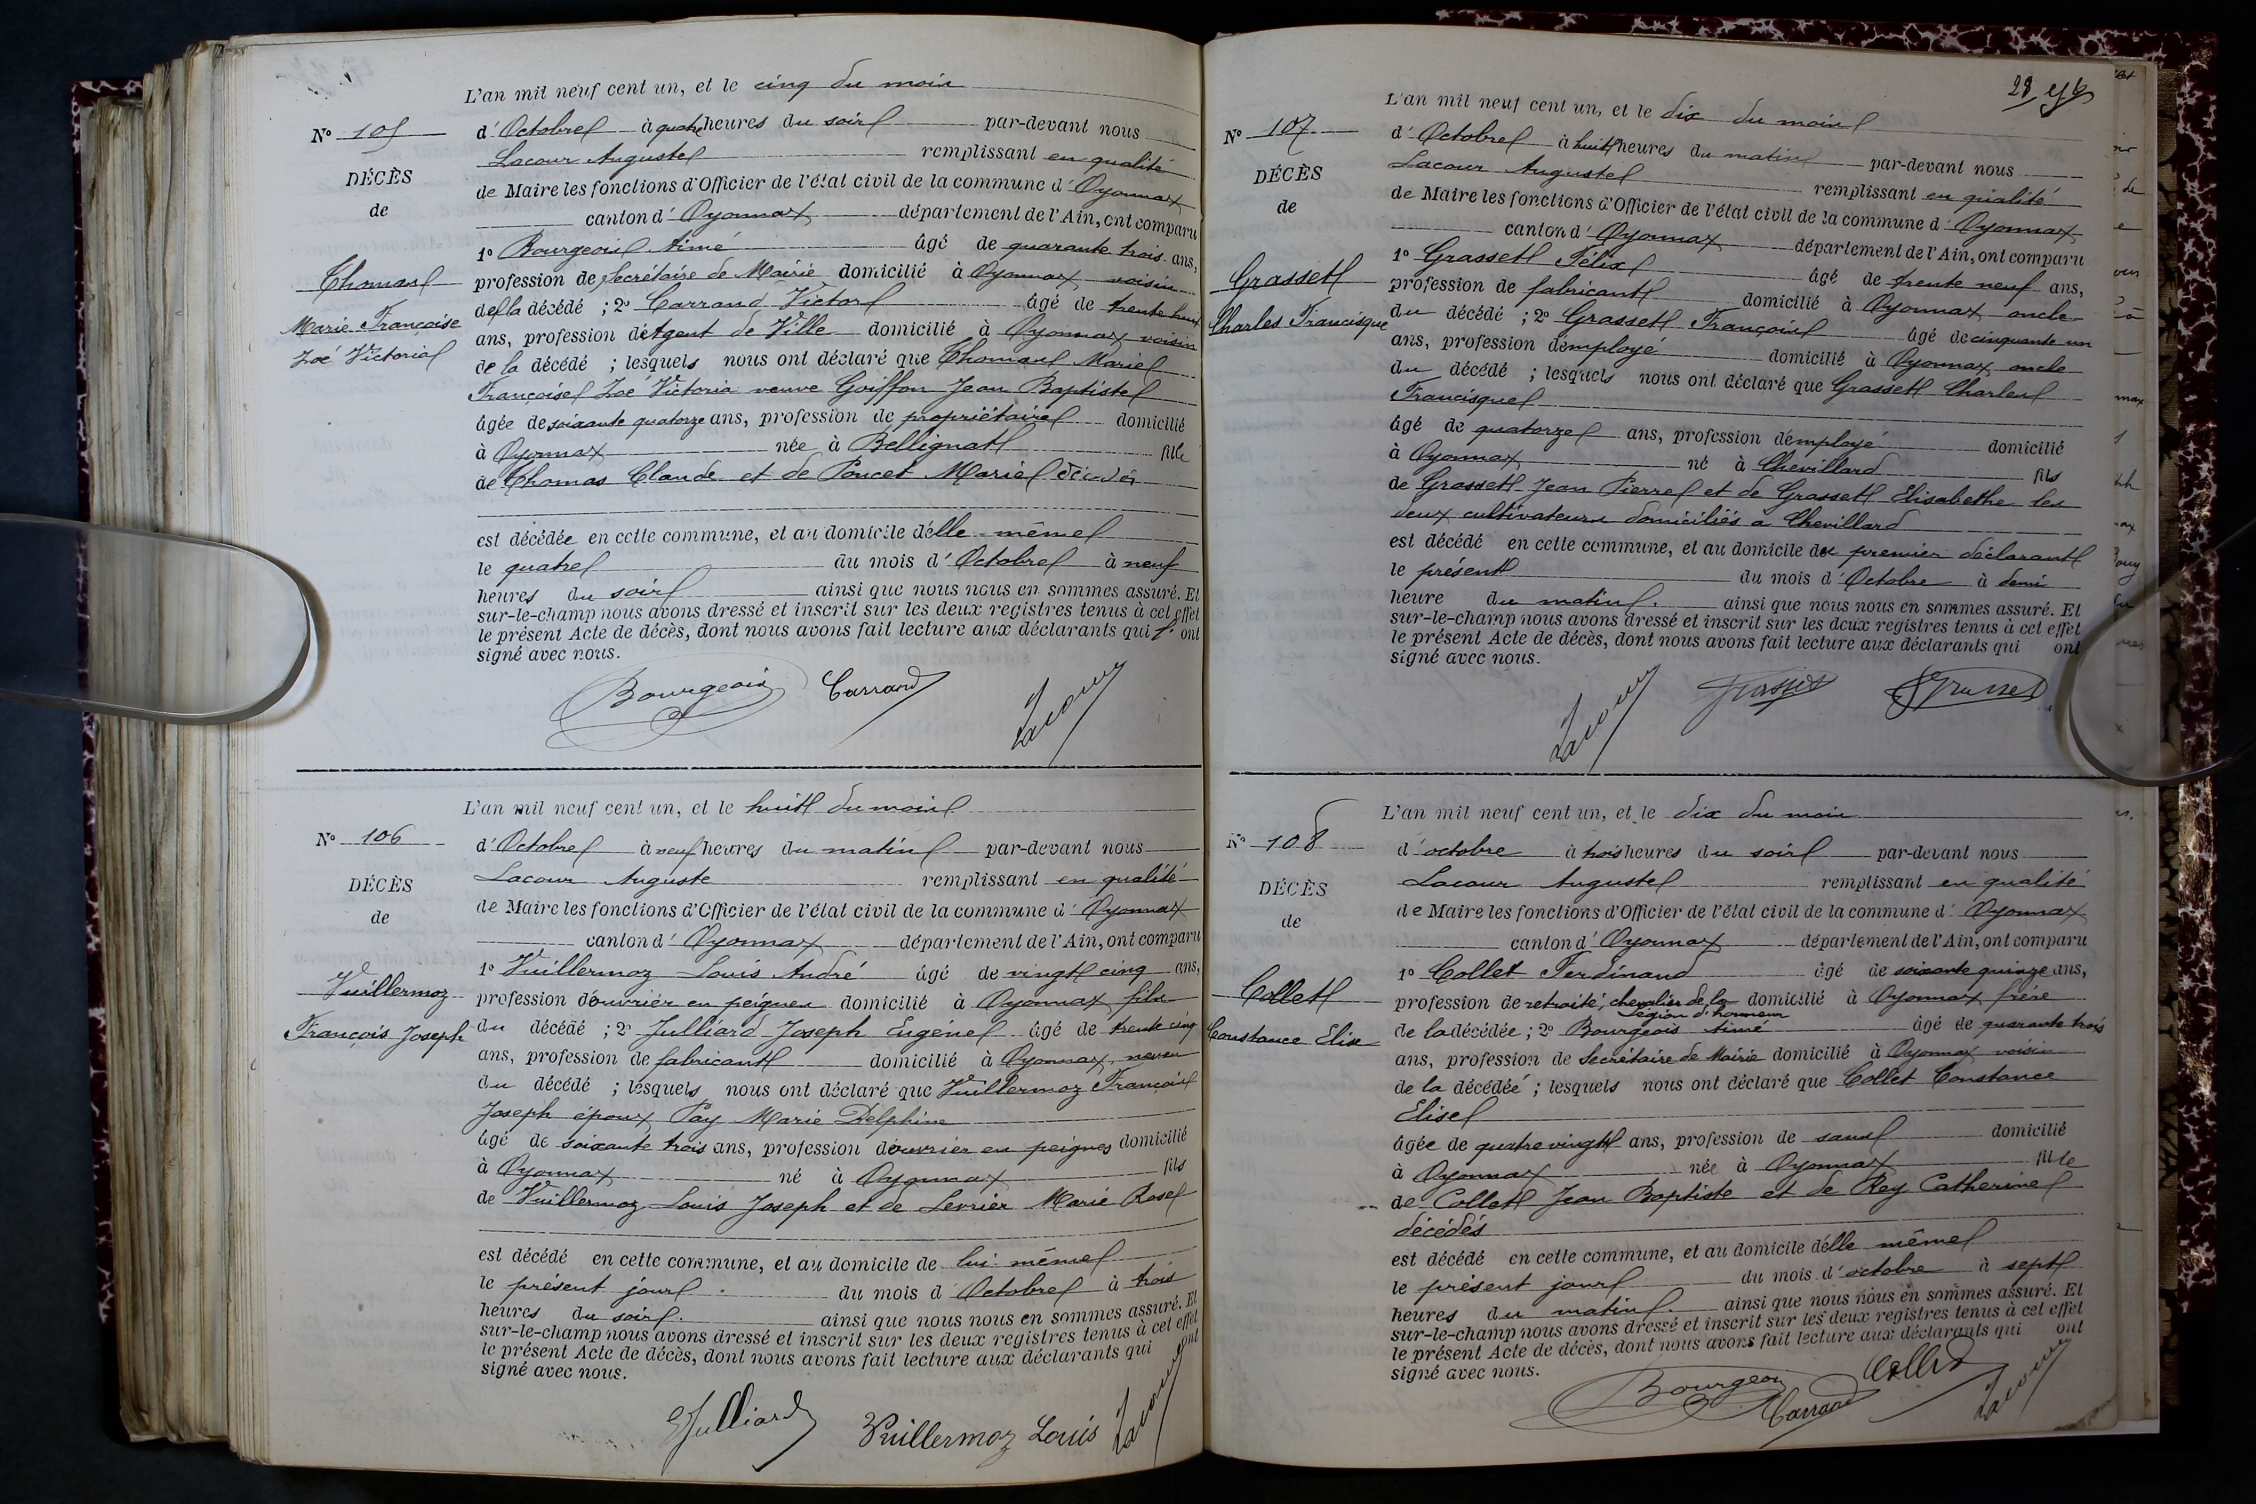 L'an mil neuf cent un, et le cinq du mois
N° 105
d'Octobre à quatre heures du soir par-devant nous
Lacour Auguste remplissant en qualité
DÉCÈS
de Maire les fonctions d'Officier de l'état civil de la commune d'Oyonnax
de
canton d'Oyonnax département de l'Ain, ont comparu
1° Bourgeois Aimé âgé de quarante trois ans,
Thomas
profession de Secrétaire de Mairie domicilié à Oyonnax voisin
de la décédé ; 2° Carrand Victor âgé de trente huit
Marie Françoise
ans, profession d'Agent de Ville domicilié à Oyonnax voisin
Zoé Victoria
de la décédé ; lesquels nous ont déclaré que Thomas Marie
Françoise Zoé Victoria veuve Goiffon Jean Baptiste
âgée de soixante quatorze ans, profession de propriétaire domicilié
à Oyonnax née à Bellignat fille
de Thomas Claude et de Poncet Marie décédés
est décédée en cette commune, et au domicile d'elle-même
le quatre du mois d'Octobre à neuf
heures du soir ainsi que nous nous en sommes assuré. Et
sur-le-champ nous avons dressé et inscrit sur les deux registres tenus à cet effet
le présent Acte de décès, dont nous avons fait lecture aux déclarants qui ont
signé avec nous.
Bourgeois Carrand Lacour
L'an mil neuf cent un, et le huit du mois
N° 106
d'Octobre à neuf heures du matin par-devant nous
Lacour Auguste remplissant en qualité
DÉCÈS
de Maire les fonctions d'Officier de l'état civil de la commune d'Oyonnax
de
canton d'Oyonnax département de l'Ain, ont comparu
1° Vuillermoz Louis André âgé de vingt cinq ans,
Vuillermoz
profession d'ouvrier en peignes domicilié à Oyonnax fils
François Joseph
du décédé ; 2° Julliard Joseph Eugène âgé de trente cinq
ans, profession de fabricant domicilié à Oyonnax, neveu
du décédé ; lesquels nous ont déclaré que Vuillermoz François
Joseph époux Pay Marie Delphine
âgé de soixante trois ans, profession d'ouvrier en peignes domicilié
à Oyonnax né à Oyonnax fils
de Vuillermoz Louis Joseph et de Levrier Marie Rose
est décédé en cette commune, et au domicile de lui-même
le présent jour du mois d'Octobre à trois
heures du soir. ainsi que nous nous en sommes assuré. Et
sur-le-champ nous avons dressé et inscrit sur les deux registres tenus à cet effet
le présent Acte de décès, dont nous avons fait lecture aux déclarants qui ont
signé avec nous.
EJulliard Vuillermoz Louis Lacour
28
L'an mil neuf cent un, et le dix du mois
N° 107
d'Octobre à huit heures du matin par-devant nous
Lacour Auguste remplissant en qualité
DÉCÈS
de Maire les fonctions d'Officier de l'état civil de la commune d'Oyonnax
de
canton d'Oyonnax département de l'Ain, ont comparu
1° Grasset Félix âgé de trente neuf ans,
Grasset
profession de fabricant domicilié à Oyonnax oncle
Charles Francisque
du décédé ; 2° Grasset François âgé de cinquante un
ans, profession d'employé domicilié à Oyonnax oncle
du décédé ; lesquels nous ont déclaré que Grasset Charles
Francisque
âgé de quatorze ans, profession d'employé domicilié
à Oyonnax né à Chevillard fils
de Grasset Jean Pierre et de Grasset Elisabethe les
deux cultivateurs domiciliés à Chevillard
est décédé en cette commune, et au domicile du premier déclarant
le présent du mois d'Octobre à demi
heure du matin. ainsi que nous nous en sommes assuré. Et
sur-le-champ nous avons dressé et inscrit sur les deux registres tenus à cet effet
le présent Acte de décès, dont nous avons fait lecture aux déclarants qui ont
signé avec nous.
Lacour Grasset Grasset
L'an mil neuf cent un, et le dix du mois
N° 108
d'octobre à trois heures du soir par-devant nous
Lacour Auguste remplissant en qualité
DÉCÈS
de Maire les fonctions d'Officier de l'état civil de la commune d'Oyonnax
de
canton d'Oyonnax département de l'Ain, ont comparu
1° Collet Ferdinand âgé de soixante quinze ans,
Collet
profession de retraité, chevalier de la domicilié à Oyonnax frère
Légion d'honneur
Constance Elise
de la décédée ; 2° Bourgeois Aimé âgé de quarante trois
ans, profession de Secrétaire de Mairie domicilié à Oyonnax voisin
de la décédée ; lesquels nous ont déclaré que Collet Constance
Elise
âgée de quatre vingt ans, profession de sans domicilié
à Oyonnax née à Oyonnax fille
de Collet Jean Baptiste et de Rey Catherine
décédés
est décédé en cette commune, et au domicile d'elle même
le présent jour du mois d'octobre à sept
heures du matin. ainsi que nous nous en sommes assuré. Et
sur-le-champ nous avons dressé et inscrit sur les deux registres tenus à cet effet
le présent Acte de décès, dont nous avons fait lecture aux déclarants qui ont
signé avec nous.
Bourgeois Carrand Collet Lacour